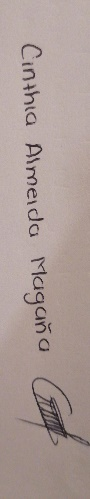 Cinthia Almeida Magaña